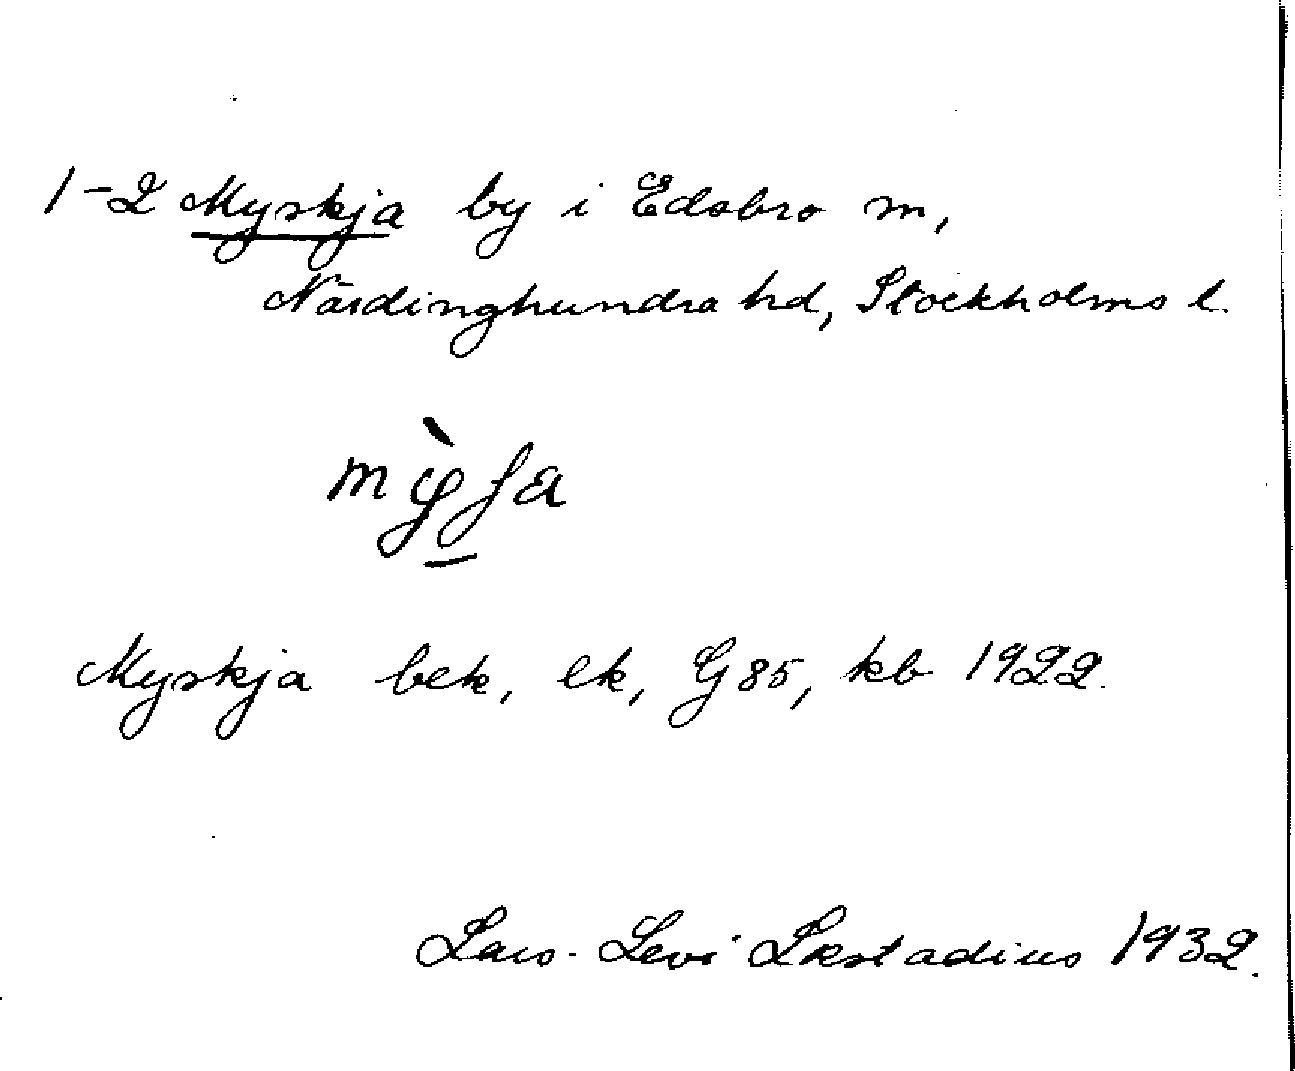 1-2 Myskja by i Edsbro sn,
Närdinghundra hd, Stockholms l.
Myskja bek, ek, G 85, kb 1922.
Lars-Levi Læstadius 1932.